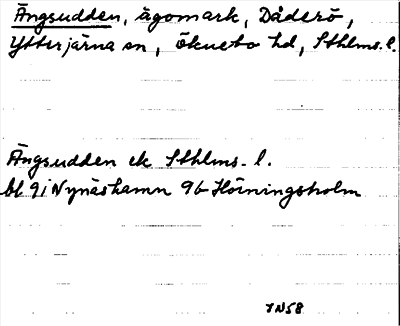 Ängsudden, ägomark, Dåderö,
Ytterjärna sn, Öknebo hd, Sthlms. l.
Ängsudden ek Sthlms. l.
bl 9i Nynäshamn 9b Hörningsholm
7N58